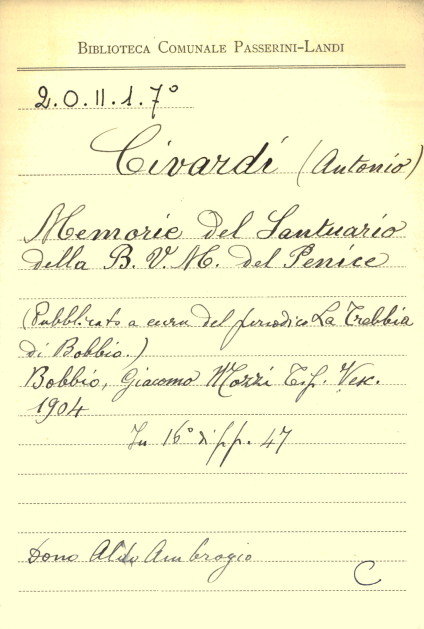 Biblioteca Comunale Passerini-Landi
2.O.II.1.7°
Civardi (Antonio)
Memorie del Santuario
della B. V. M. del Penice
(Pubblicato a cura del periodico La Trebbia
di Bobbio.)
Bobbio, Giacomo Mozzi Tip. Vesc.
1904
In 16° di pp. 47
Dono Aldo Ambrogio
C